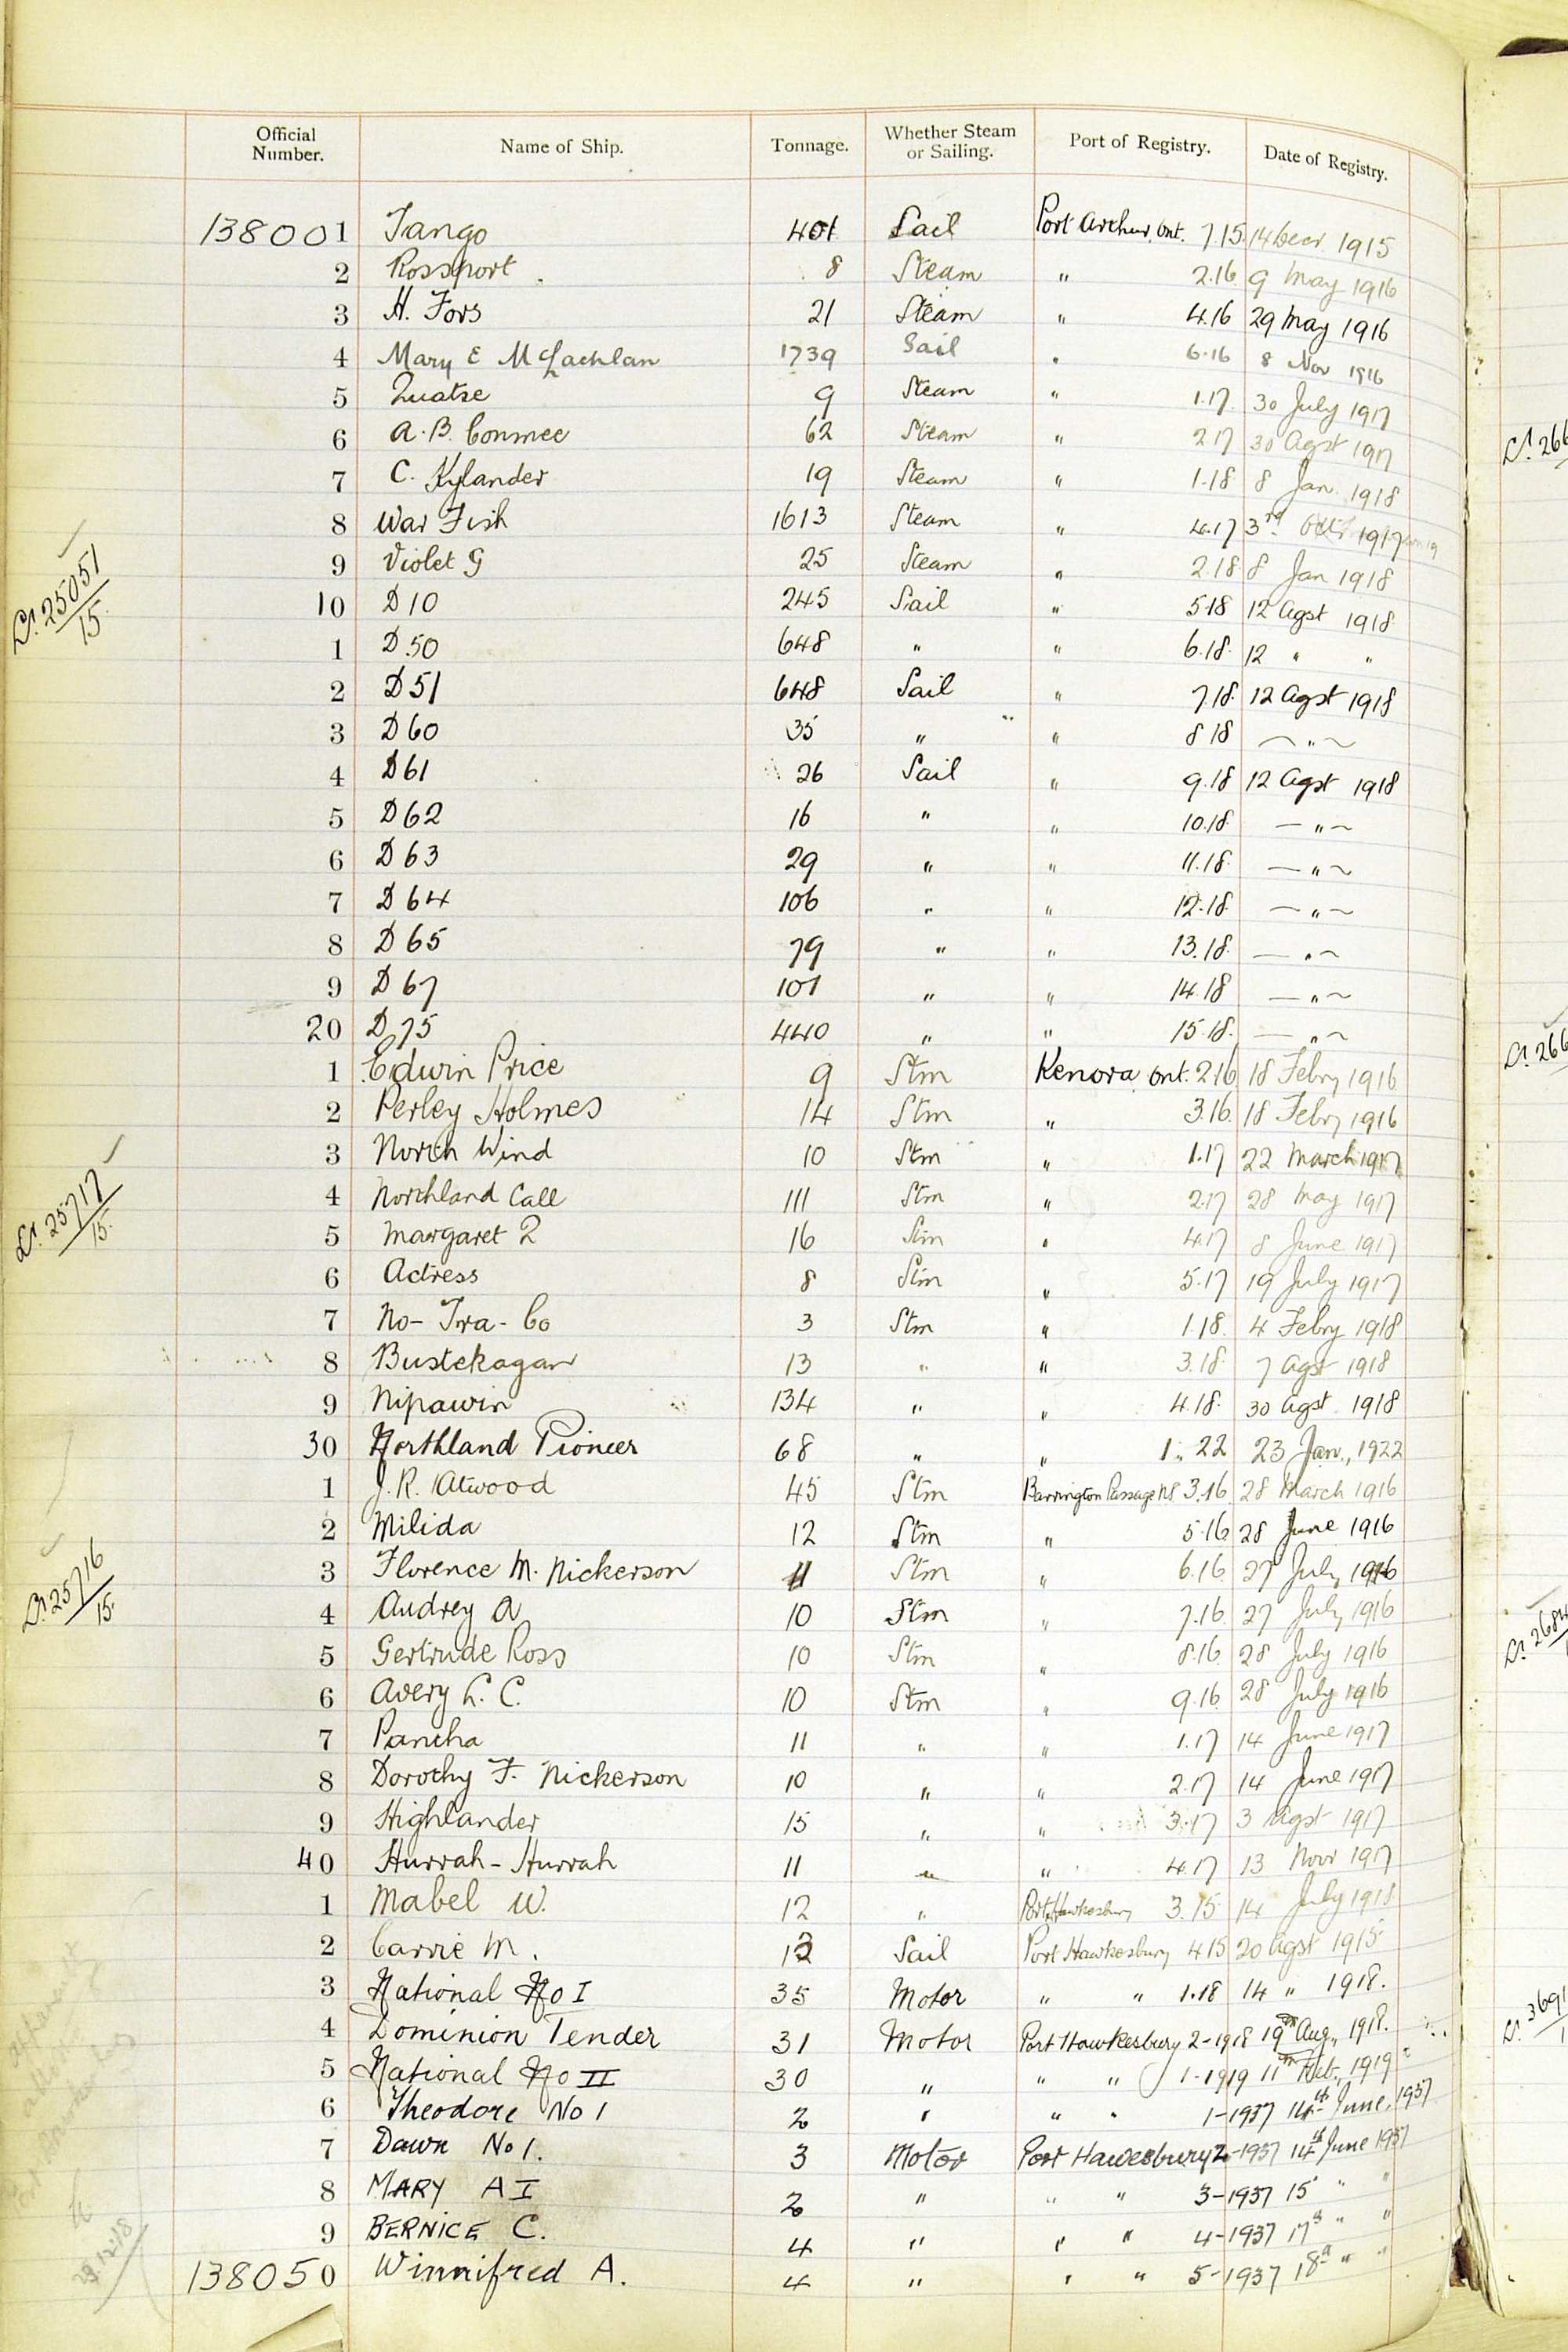 Official Number. Name of Ship. Tonnage. Whether Steam or Sailing. Port of Registry. Date of Registry.
138001 Tango 401 Sail Port Arthur, Ont. 7.15 14 Decr 1915
2 Rossport 8 Steam " 2.16 9 May 1916
3 H. Fors 21 Steam " 4.16 29 May 1916
4 Mary E McLachlan 1739 Sail " 6.16 8 Nov 1916
5 Quatse 9 Steam " 1.17 30 July 1917
6 A. B. Conmee 62 Steam " 2 17 30 Agst 1917
7 C. Kylander 19 Steam " 1.18 8 Jan. 1918
8 War Fish 1613 Steam " 4.17 3rd Oct 1917
9 Violet G 25 Steam " 2.18 8 Jan 1918
10 D 10 245 Sail " 5 18 12 Agst 1918
1 D.50 648 " " 6.18. 12 " "
2 D 51 648 Sail " 7.18. 12 Agst 1918
3 D 60 35 " " 8 18 — " —
4 D 61 26 Sail " 9.18 12 Agst 1918
5 D 62 16 " " 10.18. — " —
6 D 63 29 " " 11.18. — " —
7 D 64 106 " " 12.18. — " —
8 D 65 79 " " 13.18. — " —
9 D 67 101 " " 14.18 — " —
20 D 75 440 " " 15.18. — " —
1 Edwin Price 9 Stm Kenora Ont. 2.16 18 Febry 1916
2 Perley Holmes 14 Stm " 3.16. 18 Febry 1916
3 North Wind 10 Stm " 1.17 22 March 1917
4 Northland Call 111 Stm " 2.17 28 May 1917
5 Margaret R 16 Stm " 4.17 8 June 1917
6 Actress 8 Stm " 5.17 19 July 1917
7 No-Tra-Co 3 Stm " 1.18. 4 Febry 1918
8 Bustekagan 13 " " 3.18. 7 Agst 1918
9 Nipawin 134 " " 4.18. 30 Agst. 1918
30 Northland Pioneer 68 " " 1. 22 23 Jan., 1922
1 J. R. Atwood 45 Stm Barrington Passage NS. 3.16 28 March 1916
2 Milida 12 Stm " 5.16 28 June 1916
3 Florence M. Nickerson 11 Stm " 6.16 27 July 1916
4 Audrey A 10 Stm " 7.16 27 July 1916
5 Gertrude Ross 10 Stm " 8.16 28 July 1916
6 Avery L. C. 10 Stm " 9.16 28 July 1916
7 Pancha 11 " " 1.17 14 June 1917
8 Dorothy F. Nickerson 10 " " 2.17 14 June 1917
9 Highlander 15 " " 3.17 3 Agst 1917
40 Hurrah-Hurrah 11 " " 4.17 13 Novr 1917
1 Mabel W. 12 " Port Hawkesbury 3.15 14 July 1918
2 Carrie M. 12 Sail Port Hawkesbury 4 15 20 Agst 1915
3 National No I 35 Motor " " 1.18 14 " 1918.
4 Dominion Tender 31 Motor Port Hawkesbury 2-1918 19th Aug., 1918.
5 National No II 30 " " " 1-1919 11th Feb., 1919
6 Theodore No 1 2 " " " 1-1937 14th June, 1937
7 Dawn No 1. 3 Motor Port Hawesbury 2-1937 14th June 1937
8 MARY A I 2 " " " 3-1937 15 " "
9 BERNICE C. 4 " " " 4-1937 17th " "
138050 Winnifred A. 4 " " " 5-1937 18th " "
Lr. 25051/15.
Lr. 25717/15.
Lr. 25716/15.
Lr. 266
Lr. 266
Lr. 2684
Lr. 3691